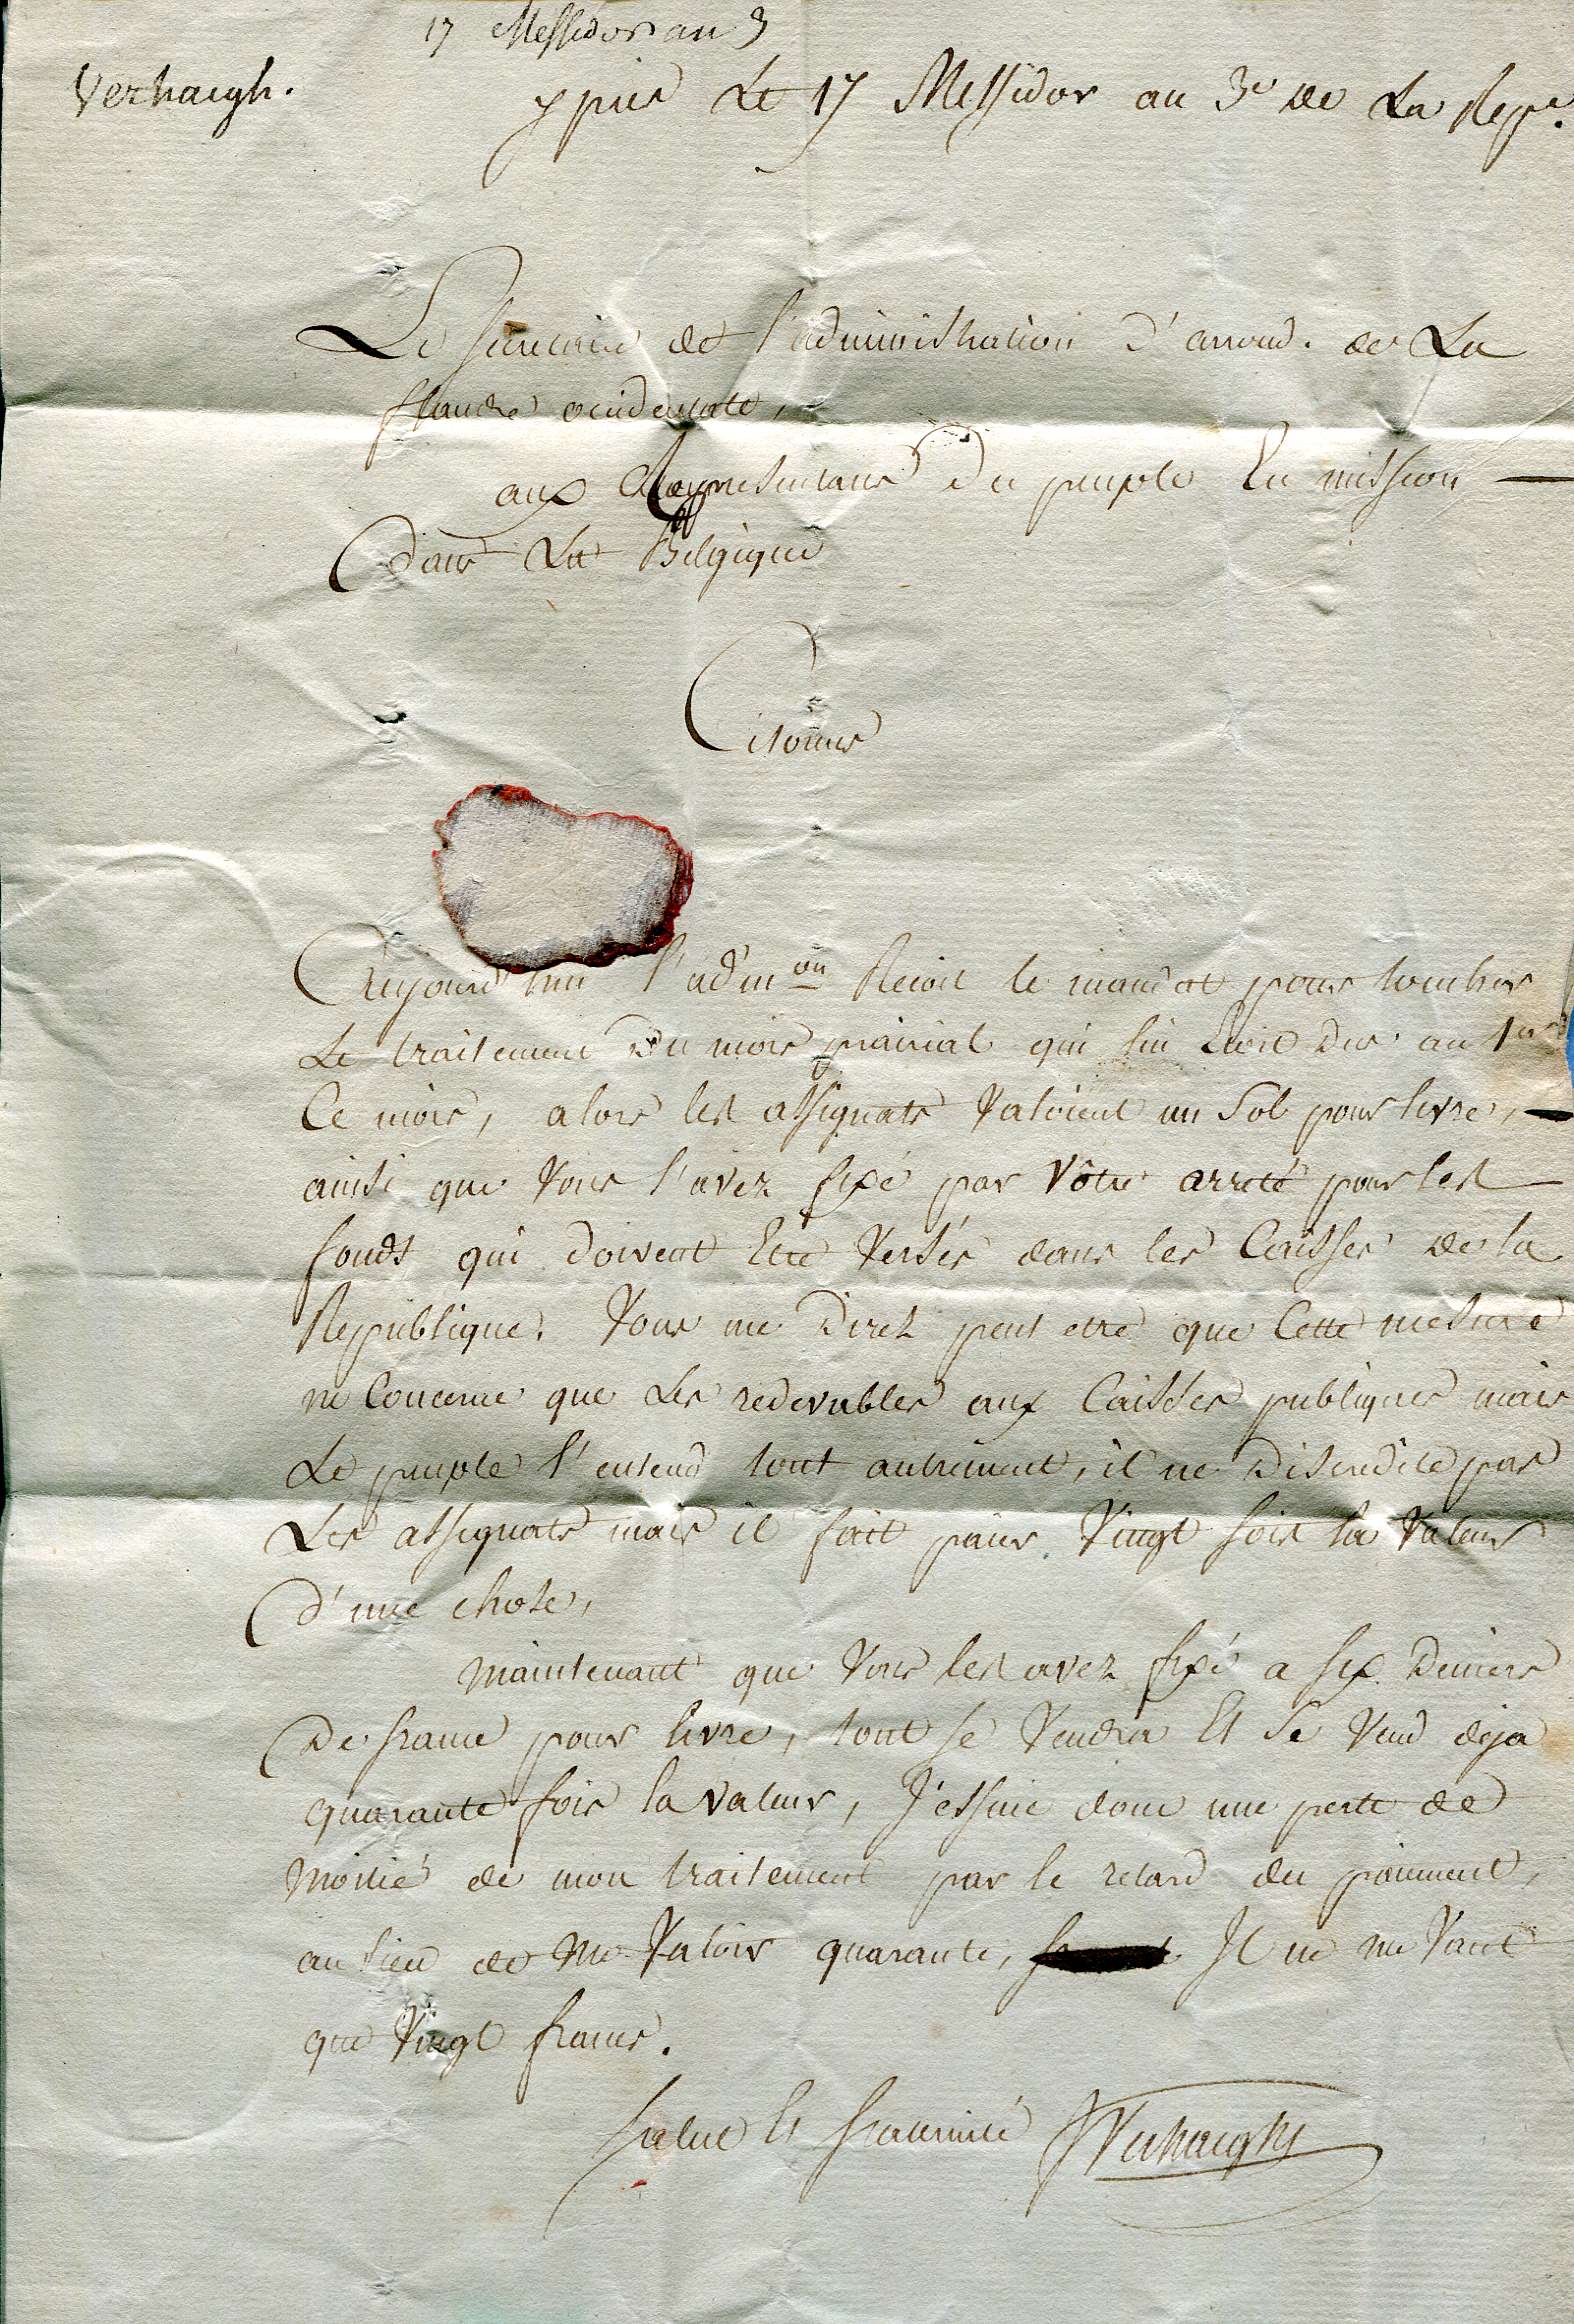 17 Messidor an 3
Verhaegh.
ypres Le 17 Messidor an 3e de La Repe.
Le secretaire de l'administration d'arrond. de La
flandre occidentale,
aux Representans du peuple En mission
Dans La Belgique
Citoiens
Aujourd'hui l'admon Recoit le mandat pour toucher
Le traitement du mois prairial qui lui Etoit Du au 1er
Ce mois, alors les assignats Valoient un Sol pour livre,
ainsi que Vous l'avez fixé par Vôtre arreté pour les
fonds qui doivent Etre Versés dans les Caisses de la
Republique. Vous me Direz peut etre que Cette mesure
ne Concerne que Les redevables aux Caisses publiques mais
Le peuple l'entend tout autrement, il ne discredite pas
Les assignats mais il fait paier Vingt fois la Valeur
D'une chose,
Maintenant que Vous les avez fixé a six Deniers
De france pour livre, tout se Vendra Et Se Vend deja
quarante fois la valeur, J'essuie donc une perte de
Moitié de mon traitement par le retard du paiement,
au lieu de Me Valoir quarante, Il ne me Vaut
que Vingt francs.
Salut Et fraternité Verhaeghe